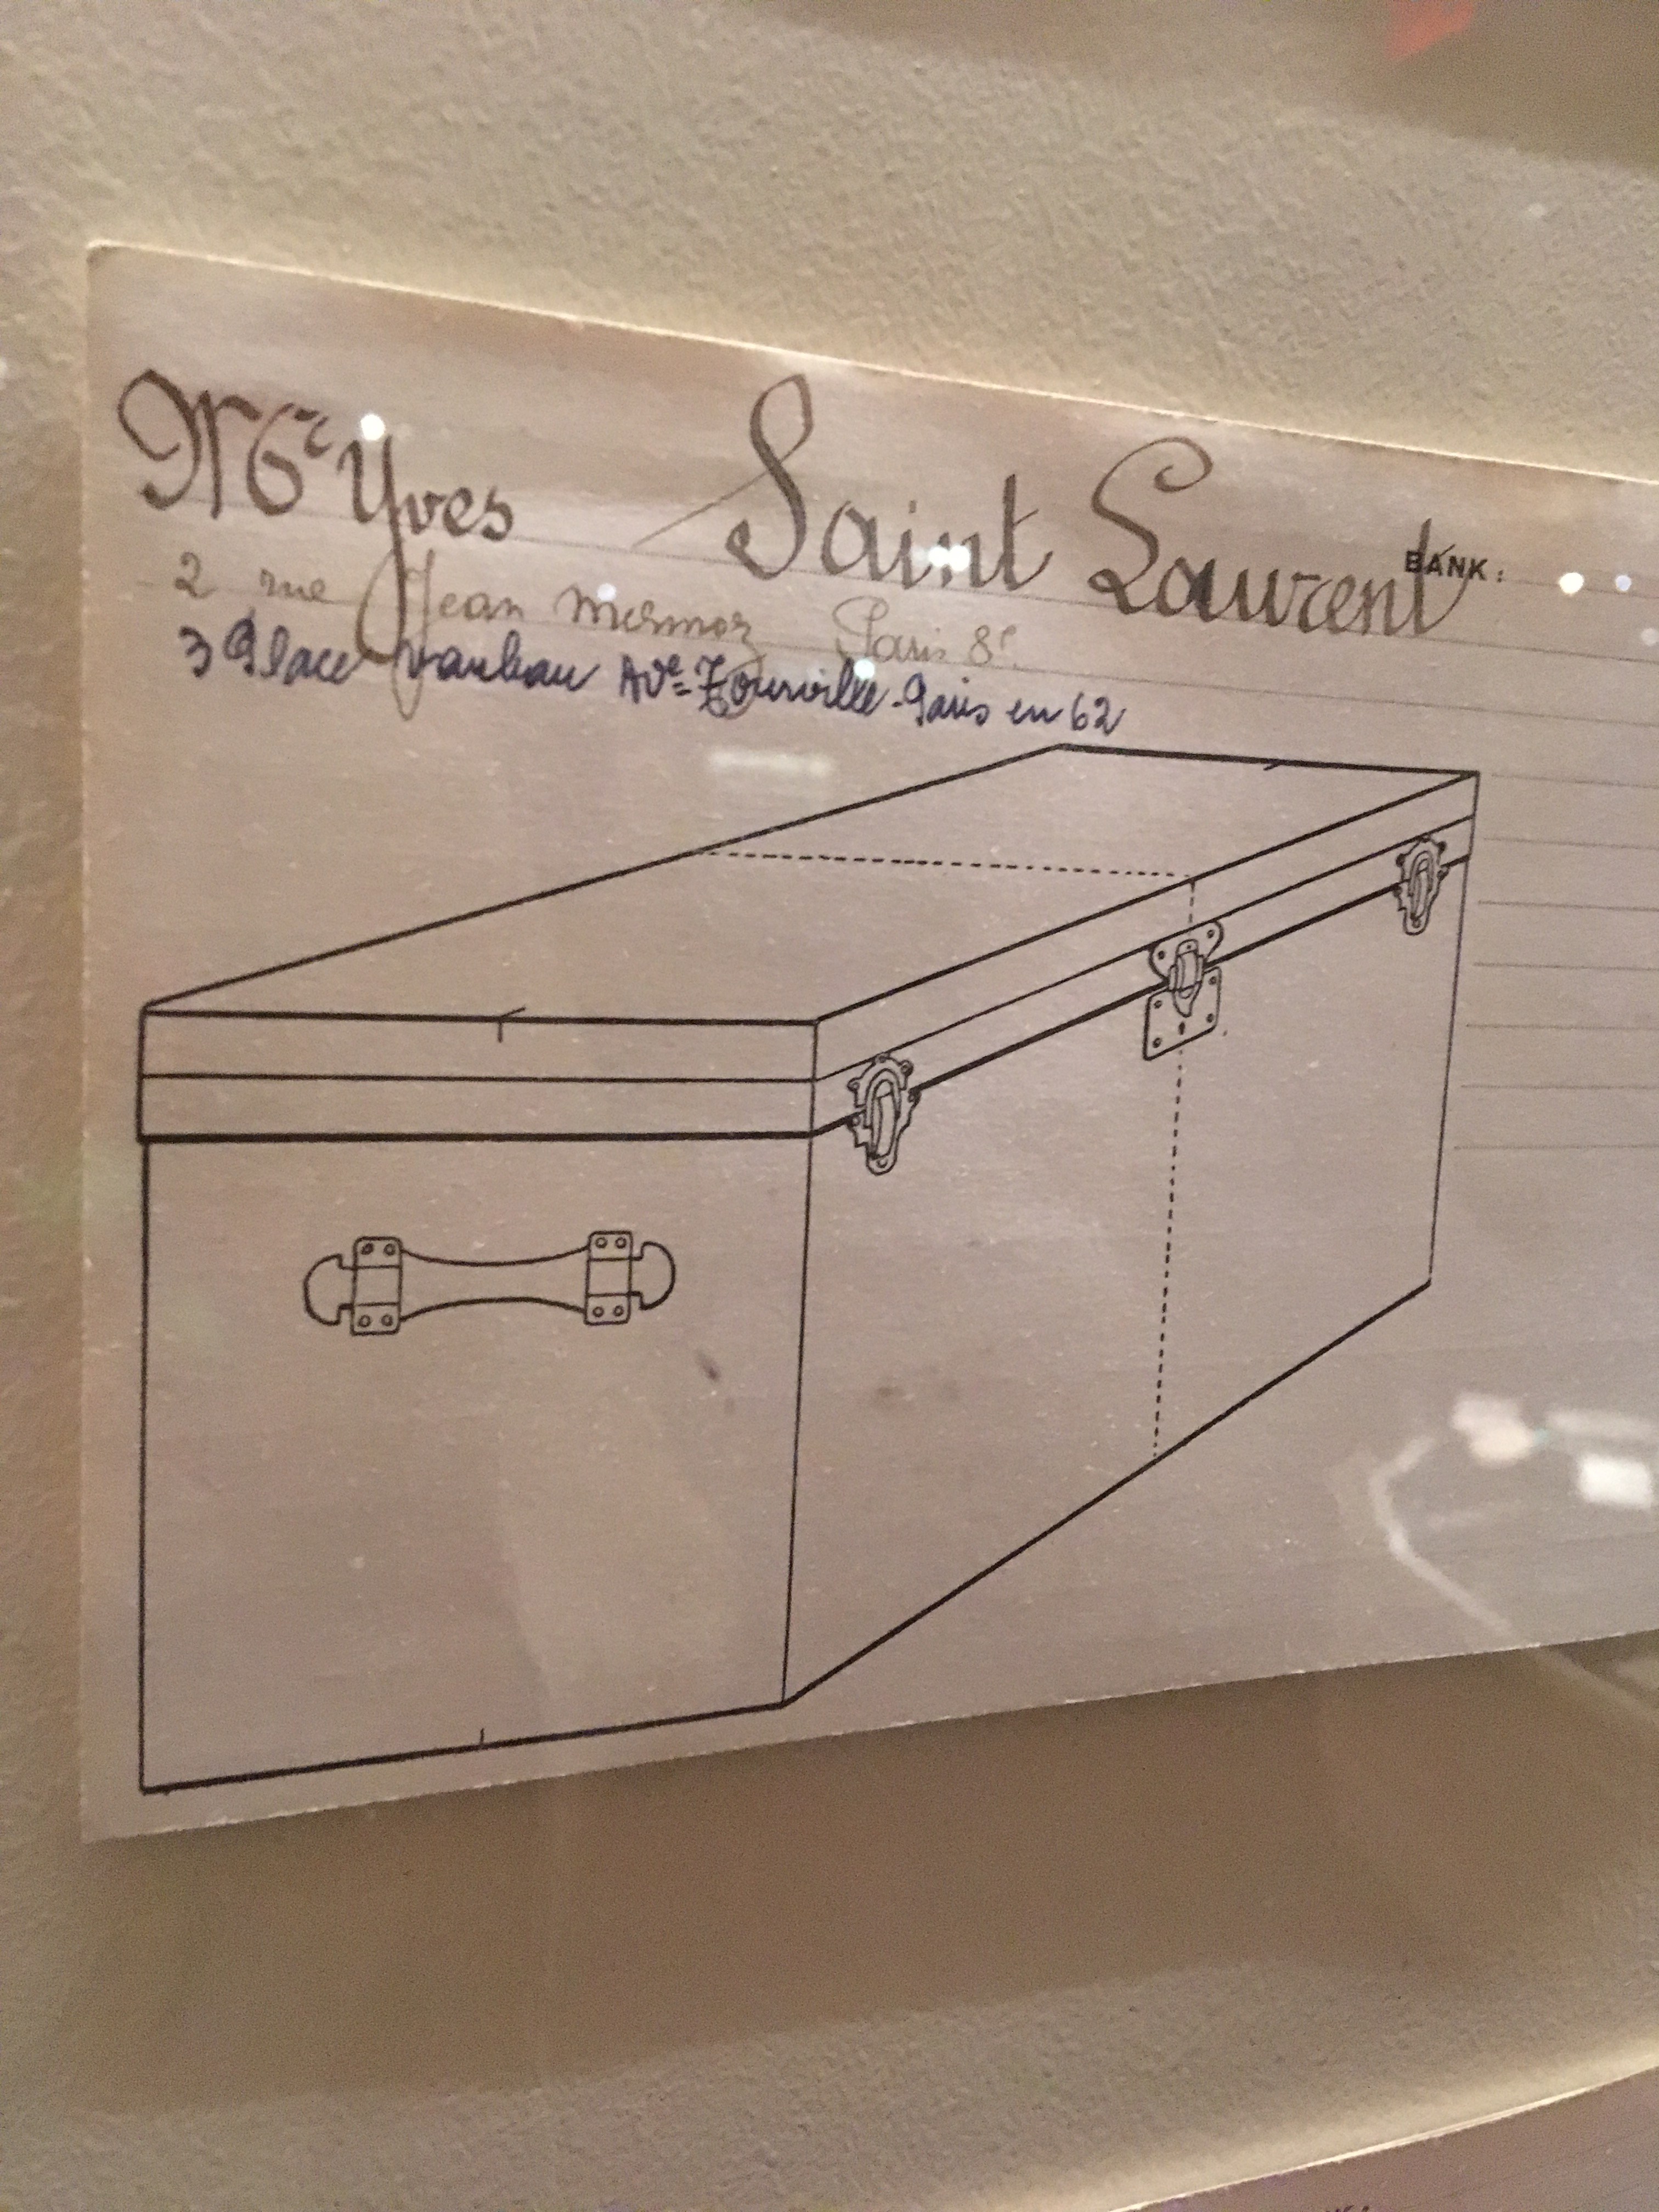 Mr Yves Saint Laurent
BANK:
2 rue Jean Mermoz Paris 8e
3 Place Vauban Ave Tourville - Paris en 62